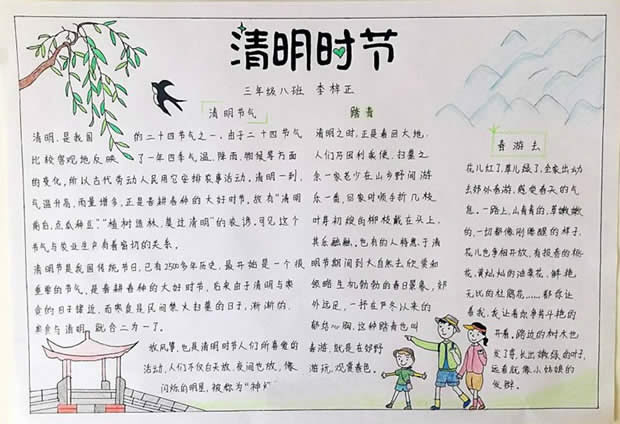 清明时节
三年级八班 李梓正
清明节气
清明,是我国 的二十四节气之一。由于二十四节气
比较客观地反映 了一年四季气温、降雨、物候等方面
的变化,所以古代劳动人民用它安排农事活动。清明一到,
气温升高,雨量增多,正是春耕春种的大好时节,故有“清明
前后,点瓜种豆”“植树造林,莫过清明”的农谚,可见这个
节气与农业生产有着密切的关系。
清明节是我国传统节日,已有2500多年历史,最开始是一个很
重要的节气,是春耕春种的大好时节,后来由于清明与寒
食的日子接近,而寒食是民间禁火扫墓的日子,渐渐的,
寒食与清明 就合二为一了。
放风筝,也是清明时节人们所喜爱的
活动,人们不仅白天放,夜间也放,像
闪烁的明星,被称为“神灯
踏青
清明之时,正是春回大地,
人们乃因利乘便,扫墓之
余一家老少在山乡野间游
乐一番,回家时顺手折几枝
叶芽初绽的柳枝戴在头上,
其乐融融。也有的人特意于清
明节期间到大自然去欣赏和
领略生机勃勃的春日景象,郊
外远足,一抒严冬以来的
郁结心胸,这种踏青也叫
春游,就是在郊野
游玩,观赏春色。
春游去
花儿红了,草儿绿了,全家出动
去郊外春游,感受春天的气
息。一路上,山青青的,草嫩嫩
的,一切都像刚睡醒的样子,
花儿也争相开放,有报春的桃
花,黄灿灿的油菜花,鲜艳
无比的杜鹃花……都你让
着我,我让着你争奇斗艳的
开着。路边的树木也
发了芽,长出嫩绿的叶子,
远看就像小姑娘的
发辫。